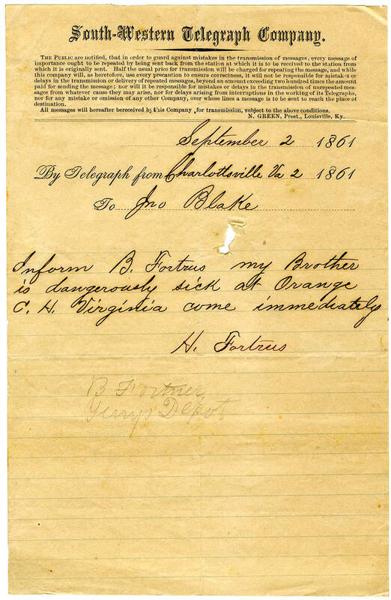 South-Western Telegraph Company.
THE PUBLIC are notified, that in order to guard against mistakes in the transmission of messages, every message of
importance ought to be repeated by being sent back from the station at which it is to be received to the station from
which it is originally sent. Half the usual price for transmission will be charged for repeating the message, and while
this company will, as heretofore, use every precaution to ensure correctness, it will not be responsible for mistakes or
delays in the transmission or delivery of repeated messages, beyond an amount exceeding two hundred times the amount
paid for sending the message; nor will it be responsible for mistakes or delays in the transmission of unrepeated messages
from whatever cause they may arise, nor for delays arising from interruptions in the working of its Telegraphs,
nor for any mistake or omission of any other Company, over whose lines a message is to be sent to reach the place of
destination.
All messages will hereafter be received by this Company for transmission, subject to the above conditions.
N. GREEN, Prest., Louisville, Ky.
September 2 1861
By Telegraph from Charlottsville Va 2 1861
To Jno Blake
Inform B. Fortrus my Brother
is dangerously sick at Orange
C. H. Virginia come immediately
H. Fortrus
B Fortner
Depot